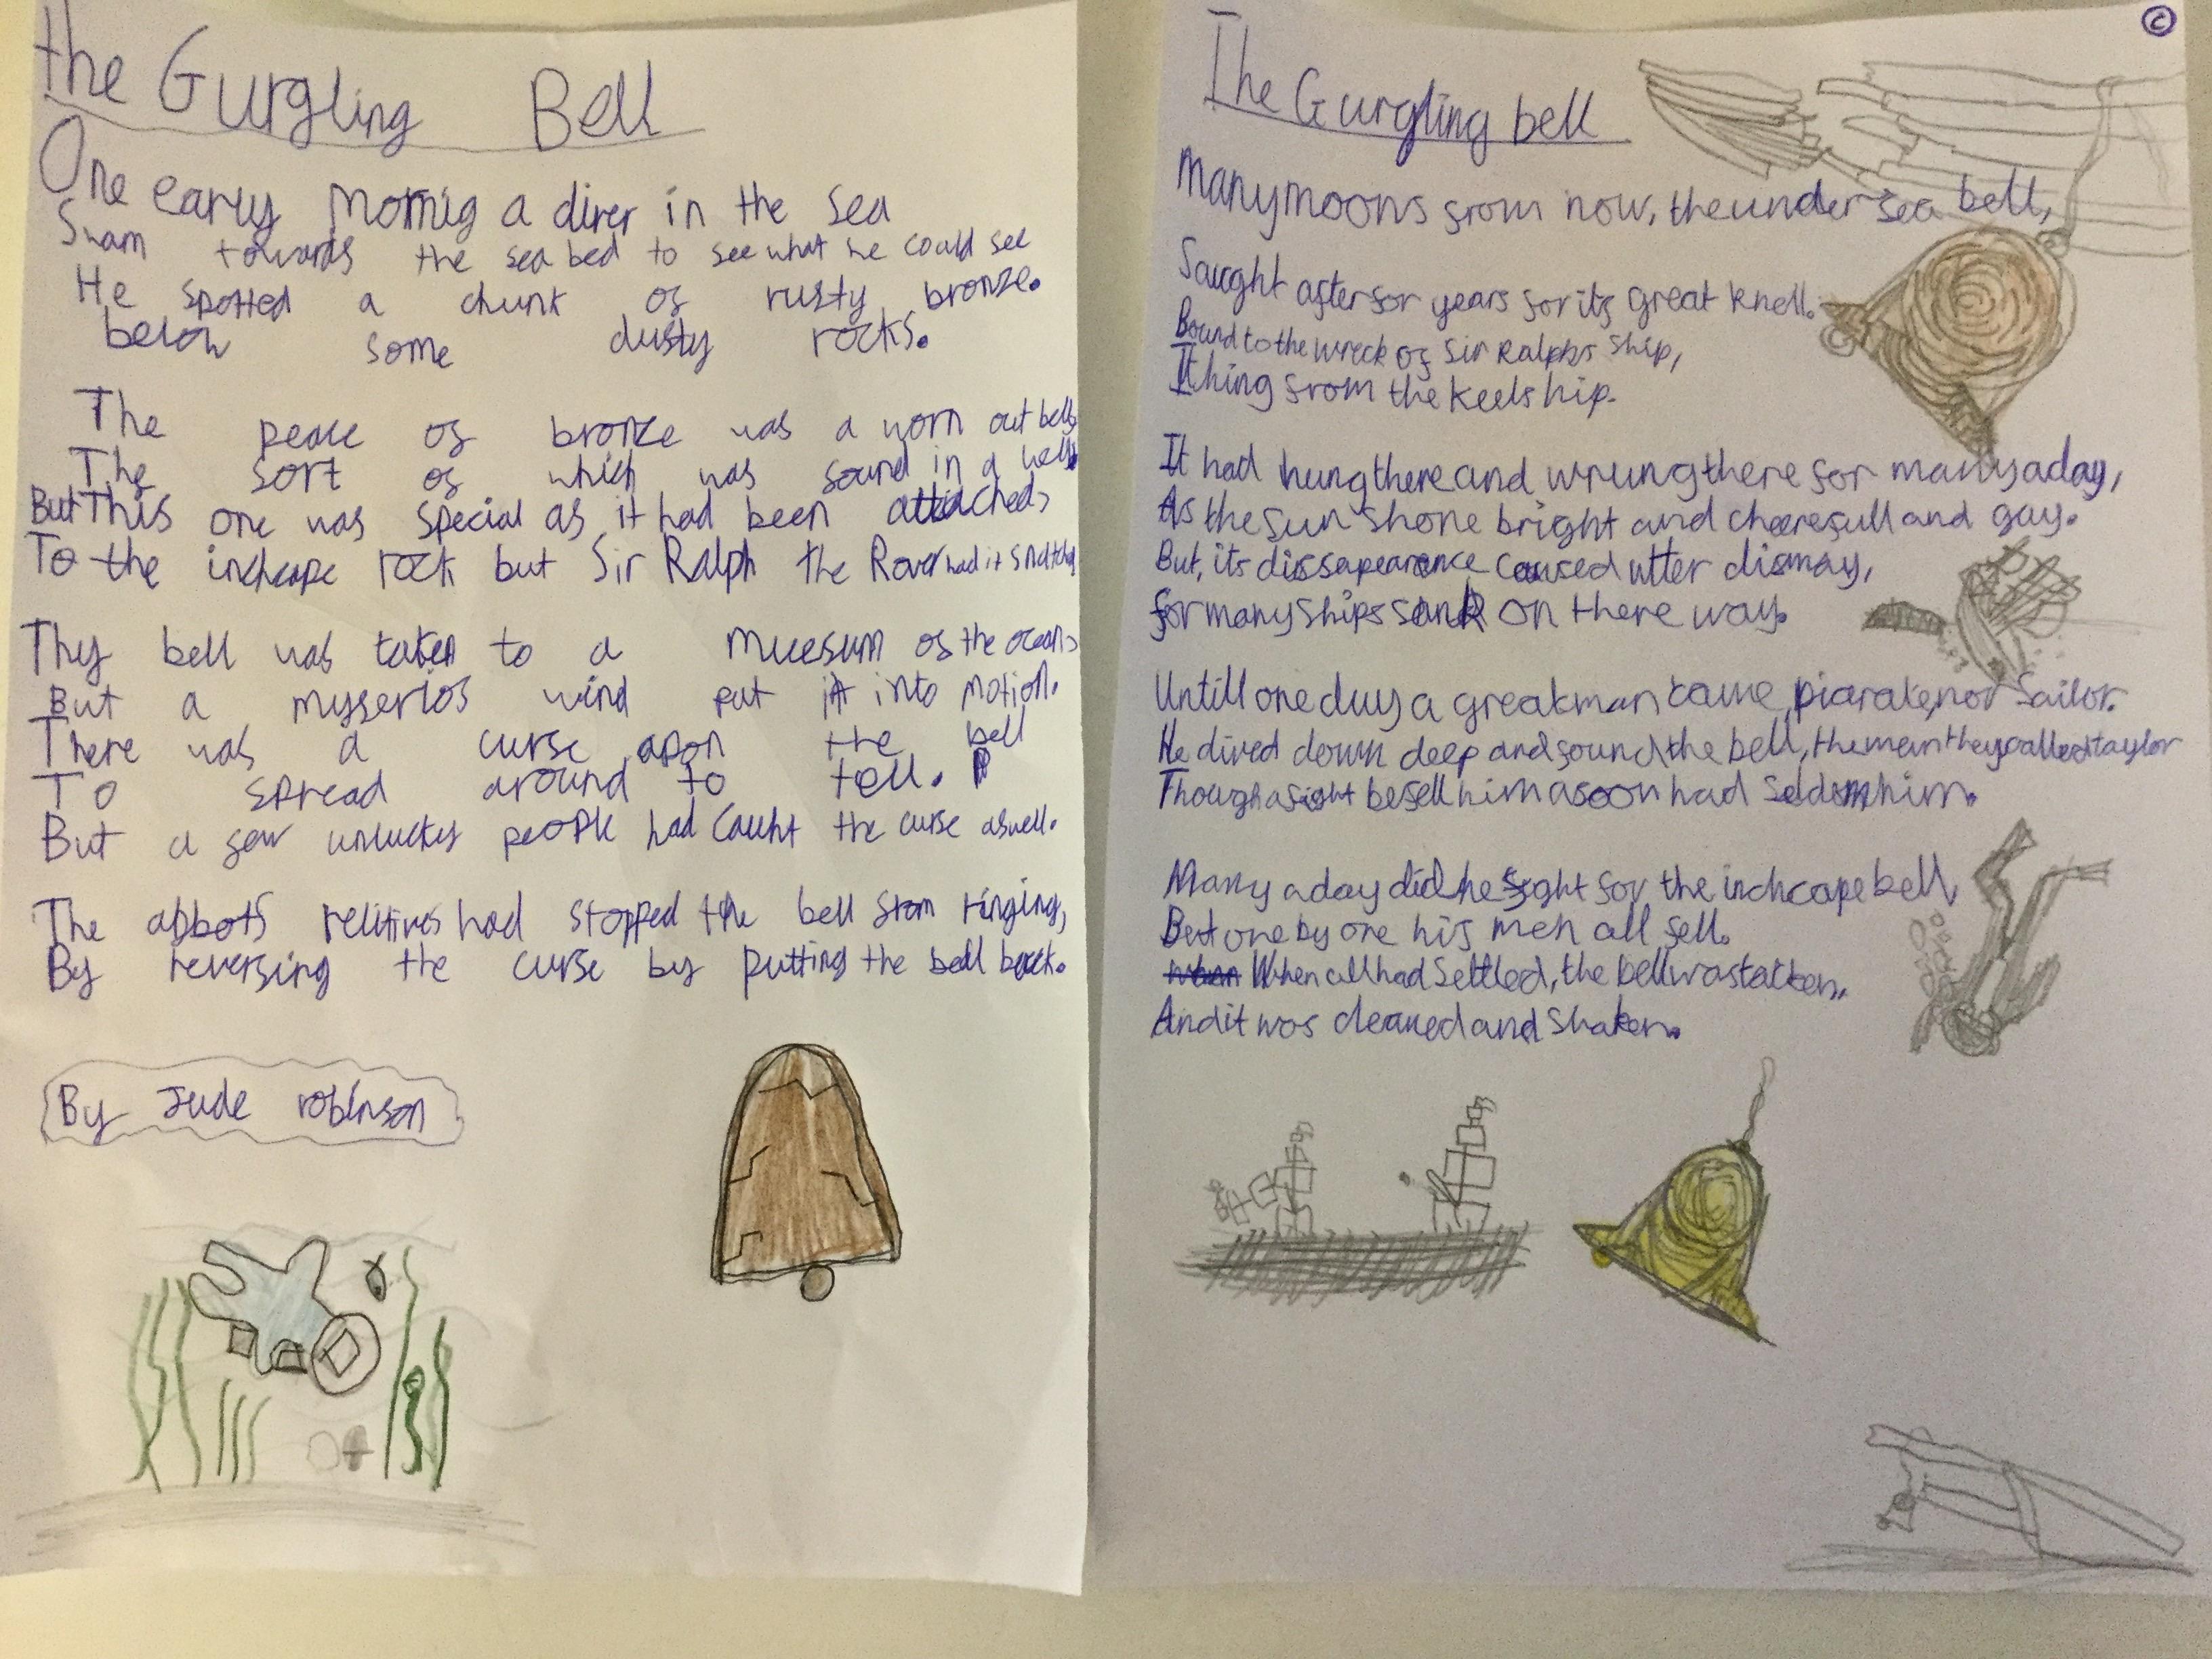 the Gurgling Bell
One early Mornig a diver in the sea
Swam towards the sea bed to see what he could see
He spotted a chunk of rusty bronze.
below some dusty rocks.
The peace of bronze was a worn out bell,
The sort of which was found in a well.
But This one was special as it had been attached,
To the inchcape rock but Sir Ralph the Rover had it snatched
Thy bell was taken to a Muesum of the ocean,
But a myserios wind put it into motion.
There was a curse apon the bell
To spread around to tell.
But a few unlucky people had caught the curse aswell.
The abbots relitives had stopped the bell from ringing,
By reversing the curse by putting the bell back.
By Jude robinson
©
The Gurgling bell
Many moons from now, the under sea bell,
Saught after for years for its great knell.
Bound to the wreck of Sir Ralphs ship,
It hing from the keel ship.
It had hung there and wrung there for many a day,
As the sun shone bright and cheerefull and gay.
But, its dissapearence caused utter dismay,
for many ships sank on there way.
Untill one day a great man came, pirarate, nor sailor.
He dived down deep and found the bell, the man they called taylor
Though a fight befell him a soon had him.
Many a day did he fight for the inchcape bell,
But one by one his men all fell.
When all had settled, the bell was taken,
And it was cleaned and shaken.